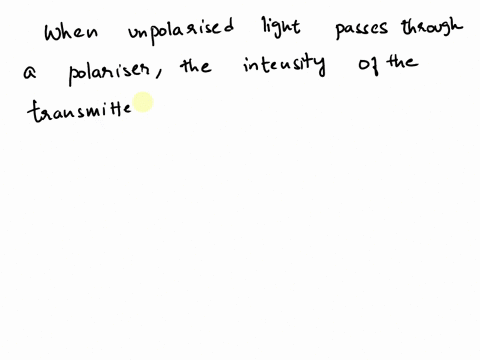 When unpolarised light passes through
a polariser, the intensity of the
transmitte